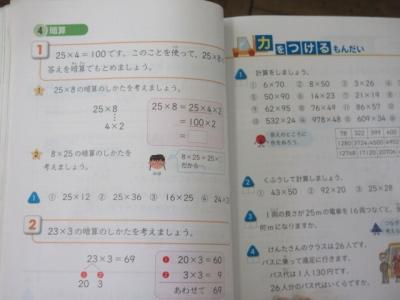 4 暗算
1
25×4=100です。このことを使って、25×8の
答えを暗算でもとめましょう。
1 25×8の暗算のしかたを考えましょう。
25×8
4×2
25×8=25×4×2
=100×2
=
2 8×25の暗算のしかたを
考えましょう。
8×25=25×
だから、
1 ① 25×12 ② 25×36 ③ 16×25 ④ 24×
2
23×3の暗算のしかたを考えましょう。
23×3=69
20 3
❶ 20×3=60
❷ 3×3= 9
あわせて 69
力をつけるもんだい
1 計算をしましょう。
① 6×70 ② 8×50 ③ 3×26
⑤ 50×90 ⑥ 14×23 ⑦ 21×19
⑨ 62×95 ⑩ 76×49 ⑪ 86×57
⑬ 532×24 ⑭ 978×48 ⑮ 609×34
答えのところに
色をぬろう。
78 322 399 400
1280 3724 4500 4902
12768 17120 20706
2 くふうして計算しましょう。
① 43×50 ② 92×20 ③ 25×28
3 1両の長さが25mの電車を16両つなぐと、
何mになりますか。
4 けんたさんのクラスは26人です。
バスに乗って遠足に行きます。
バス代は1人130円です。
26人分のバス代はいくらですか。